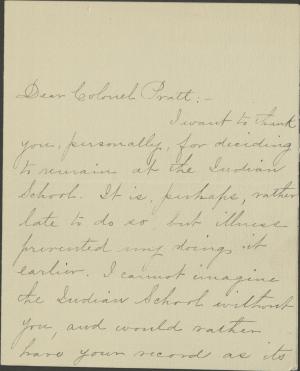 Dear Colonel Pratt:-
I want to thank
you, personally, for deciding
to remain at the Indian
School. It is, perhaps, rather
late to do so but illness
prevented my doing it
earlier. I cannot imagine
the Indian School without
you, and would rather
have your record as its